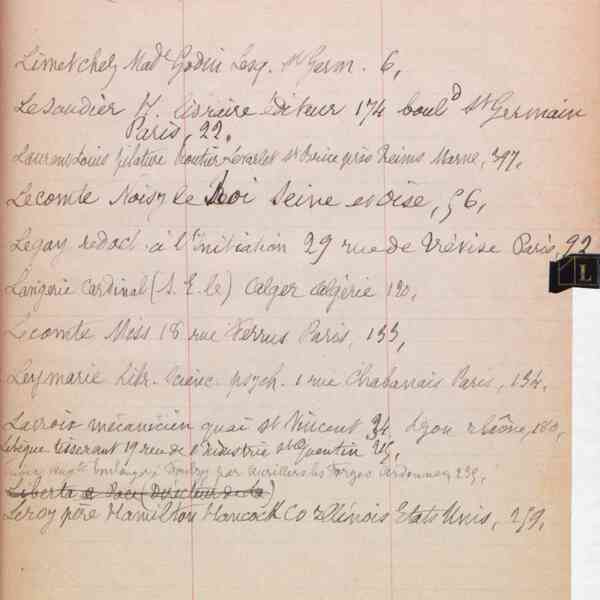 Limetchel, Made Godin Lesq. St Germ. 6,
Lesoudier H. libraire éditeur 174 bould St Germain
Paris, 22.
Laurent Louis filature près Reims Marne, 397.
Lecomte Noisy le Roi Seine et Oise, 56,
Legay rédact. à l'Initiation 29 rue de Trévise Paris, 92
L
Langerie Cardinal (S. E. le) Alger Algérie 120,
Lecomte Miss 18 rue Ferrus Paris, 133,
Leymarie Libr. Scienc. psych. 1 rue Chabanais Paris, 134.
Lacroix mécanicien quai St Vincent 34 Lyon Rhône, 180,
tisserant 19 rue de l'industrie St Quentin 215,
boulanger par Vrilliers les Forges Ardennes, 239,
Liberta e Pace (Directeur de la)
Leroy père Hamilton Hancock Co Illinois Etats Unis, 259,